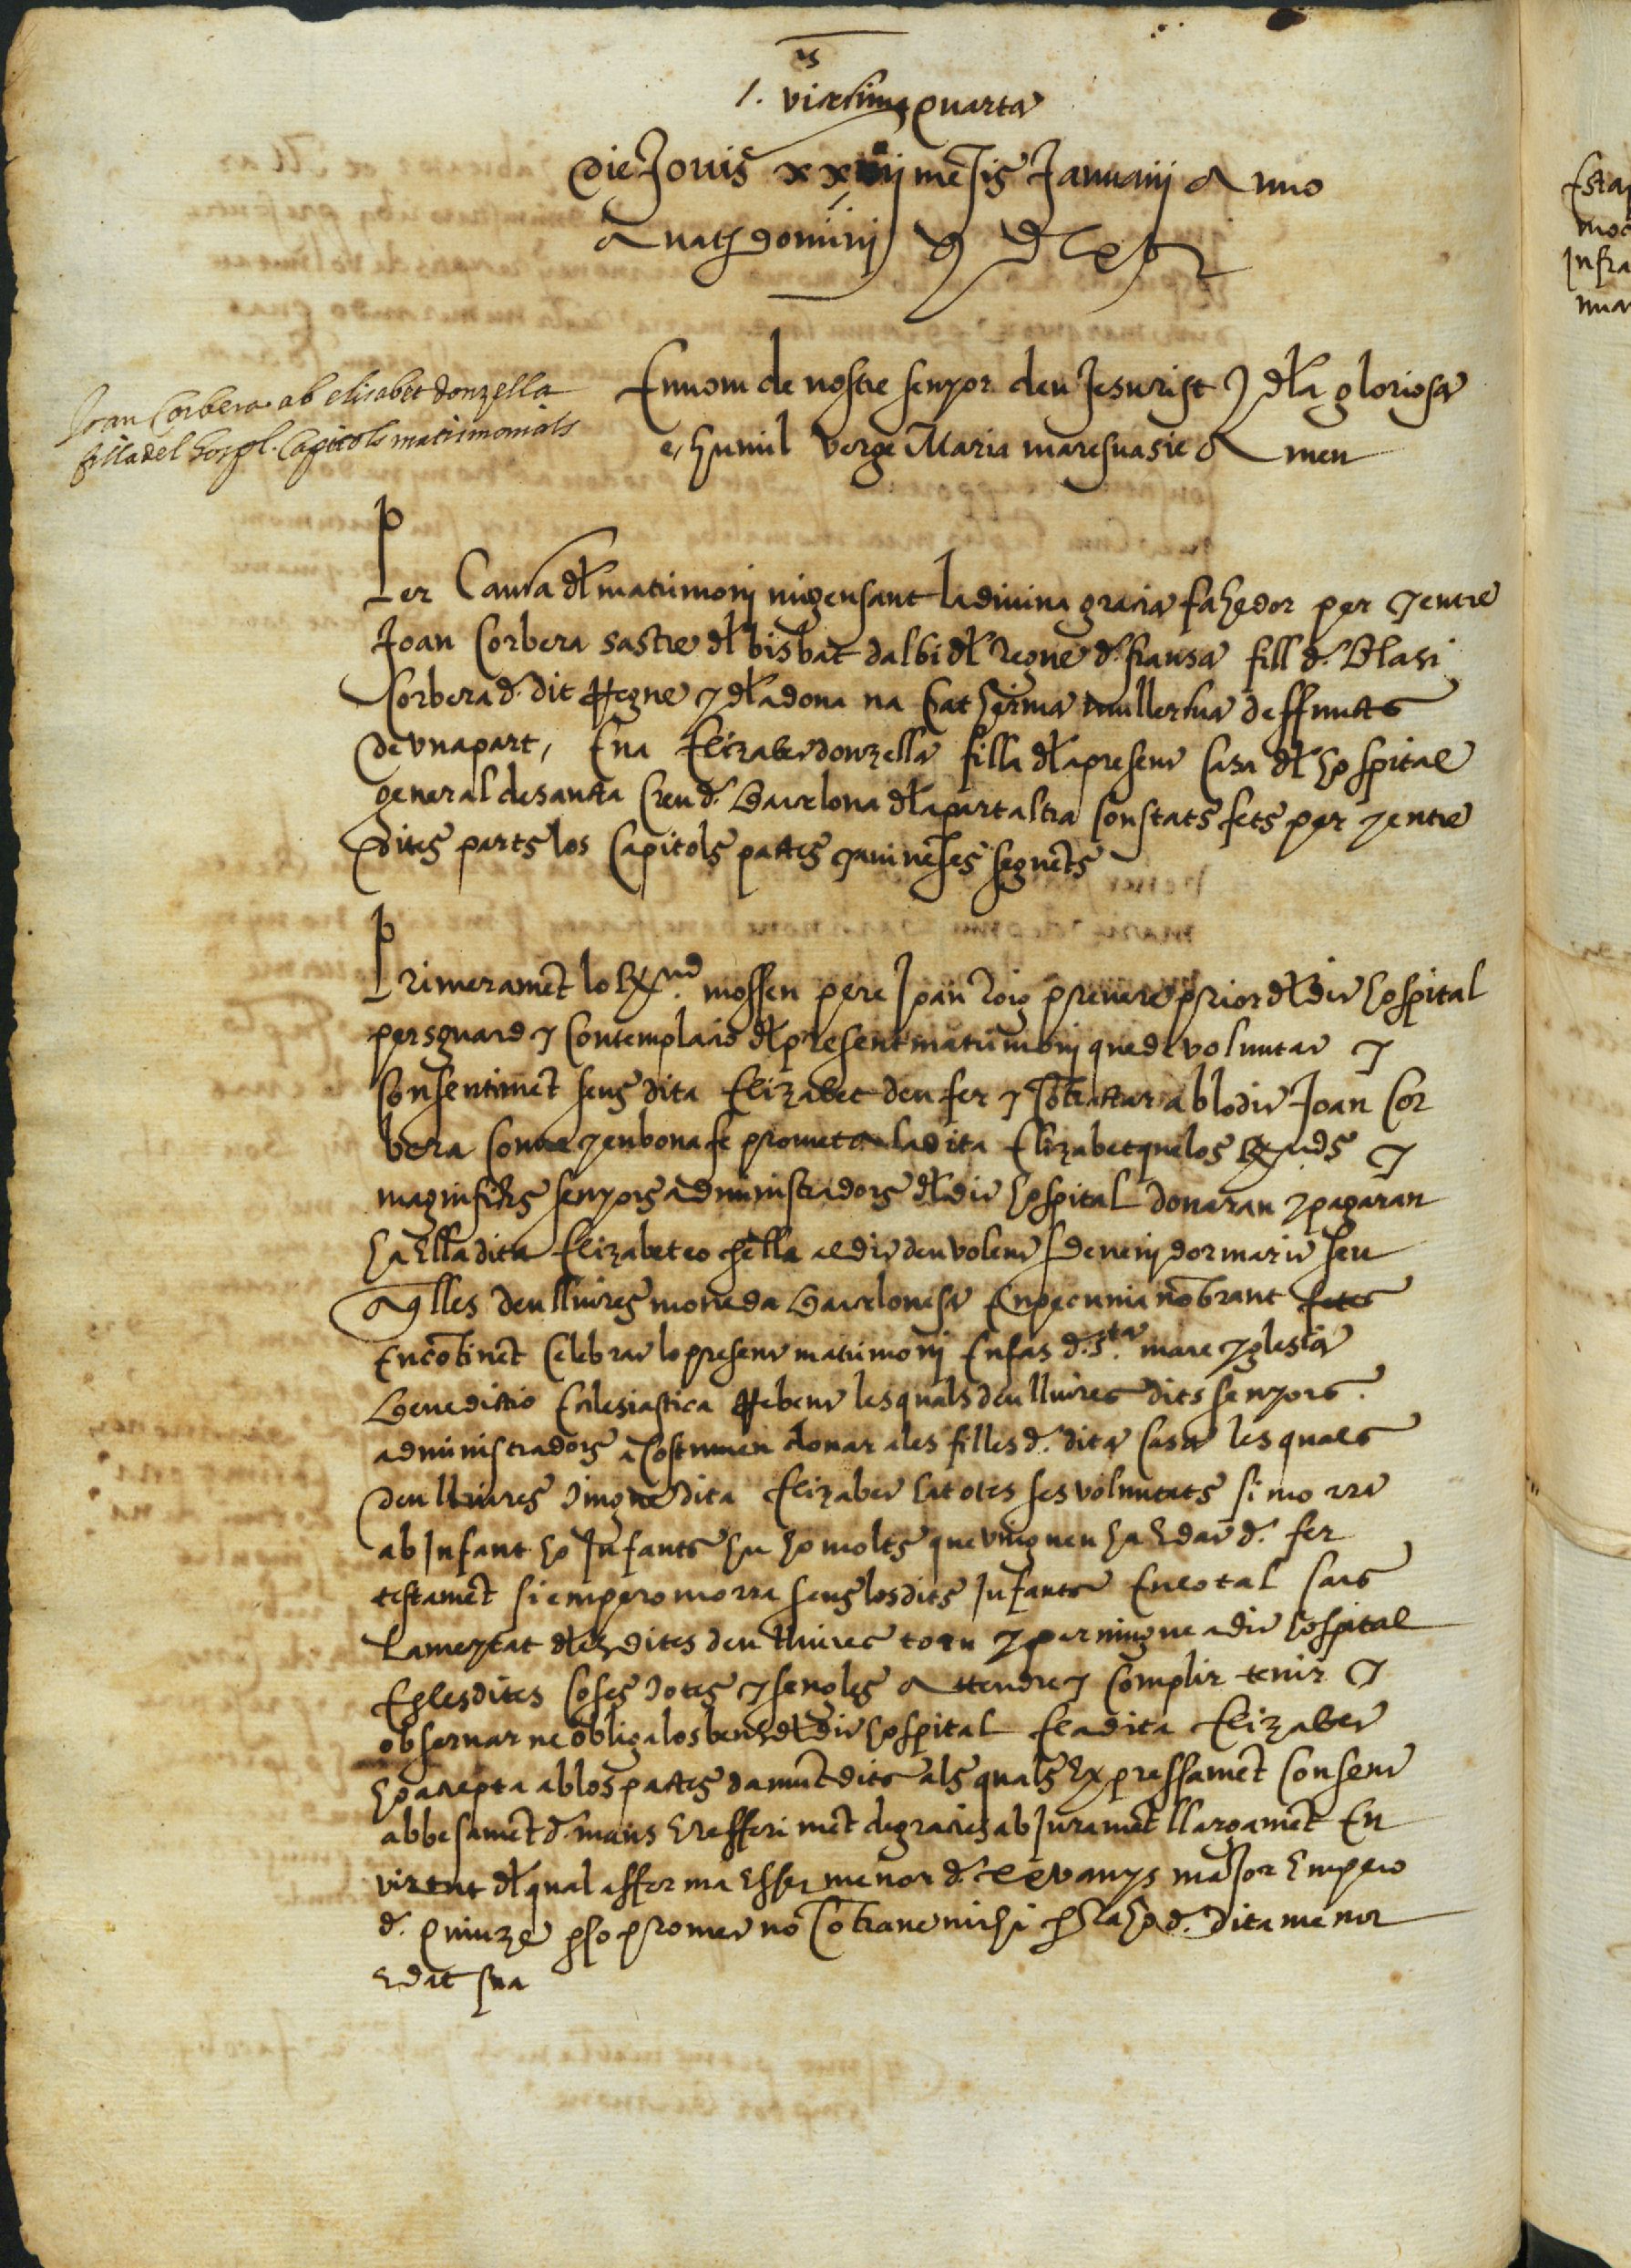 1. vicesima quarta
Die Jovis xxiiij mēsis Januarij Anno
A natī domini M D Lxv
Joan Corbera ab elisabet donzella
filla del hospl. Capitols matrimonials
En nom de nostre senyor deu Jesucrist y dla gloriosa
e, humil verge Maria mare sua sie Amen
Per Causa dl matrimonj migensant la divina gracia fahedor per y entre
Joan Corbera sastre dl bisbat dalbi dl Regne d. fransa fill d. Blasi
Corbera d. dit Regne y dla dona na Catherina muller sua deffuncts
de vna part, E na Elizabet donzella filla dla present Casa dl hospital
general de sancta Creu d. Barcelona dla part altra son stats fets per y entre
dites parts los Capitols pactes y avineses seguēts
Primeramēt lo Rnd. mossen pere Joan Roig prevere prior dl dit hospital
per sguard y Contemplaio dl present matrimonj que de voluntat y
Consentimēt seus dita Elizabet deu fer y Cōtractar ab lo dit Joan Cor
bera Conve y en bona fe promet a la dita Elizabet que los Rnds y
magnifichs senyors administradors dl dit hospital donaran y pagaran
ha Ella dita Elizabet eo p ella al dit deuvolent sdevenjdor marit seu
Aqlles deu lliures moneda Barcelonesa En pecunia nōbrant fetes
En cōtinēt Celebrat lo present matrimonj En fas d. sta. mare yglesia
Benedictio Eclesiastica Rebent les quals deu lliures dits senyors
administradors acostumen donar a les filles d. dita Casa les quals
deu lliures dingne dita Elizabet hat otes ses voluntats si morra
ab Infant ho Infants hu ho molts que vingnen ha Edat d. fer
testamēt si empero morra sens los dits Infants En eo tal sars
la meytat dles dites deu lliures torn y perningue a dit hospital
E p les dites Coses totes y sengles Attendre y Complir tenir y
obseruar ne obliga los bens dl dit hospital E la dita Elizabet
ho accepta ab los pactes damūt dits als quals Expressamēt Consent
ab besamēt d. mans E refferimēt de gracies ab Juramēt llargamēt En
virtut dl qual afferma Esser menor d. xxv anys maior Empero
d. quinze pso promet no Cōtravenir hi p rāho d. dita menor
Edat sua